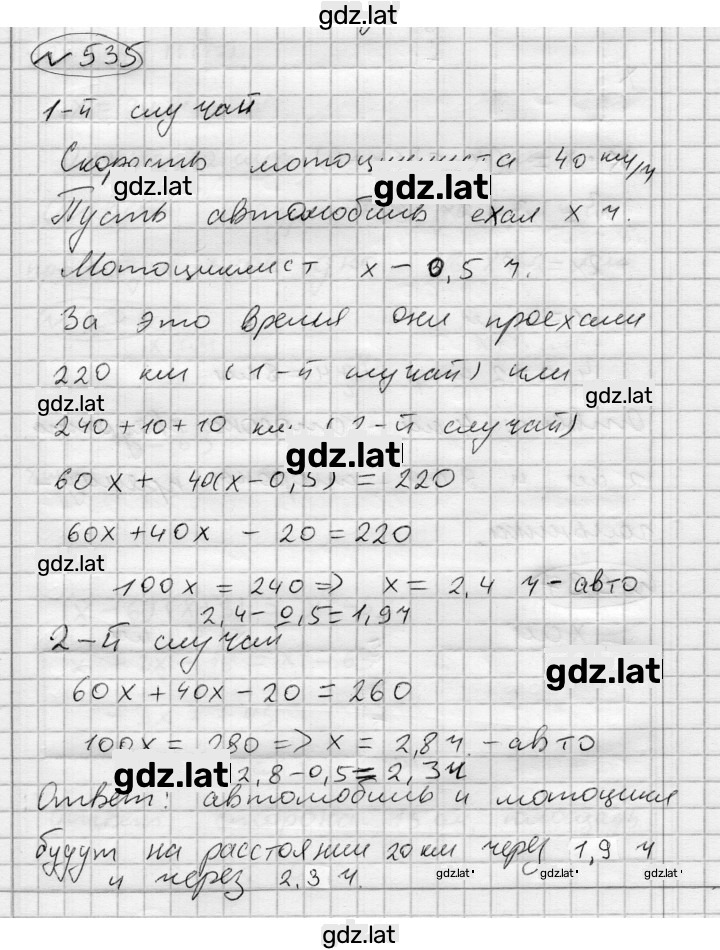 gdz.lat
№ 535
1-й случай
Скорость мотоциклиста 40 км/ч
gdz.lat gdz.lat
Пусть автомобиль ехал х ч.
Мотоциклист х - 0,5 ч.
За это время они проехали
220 км (1-й случай) или
gdz.lat gdz.lat
240+10+10 км (1-й случай)
gdz.lat
60х + 40(х-0,5) = 220
60х+40х - 20 = 220
gdz.lat
100х = 240 => х = 2,4 ч - авто
2,4-0,5=1,9ч
2-й случай
gdz.lat
60х+40х-20 = 260
100х = 280 => х = 2,8 ч. - авто
gdz.lat 2,8-0,5=2,3ч
Ответ: автомобиль и мотоцикл
будут на расстоянии 20 км через 1,9 ч
и через 2,3 ч.
gdz.lat gdz.lat gdz.lat
gdz.lat